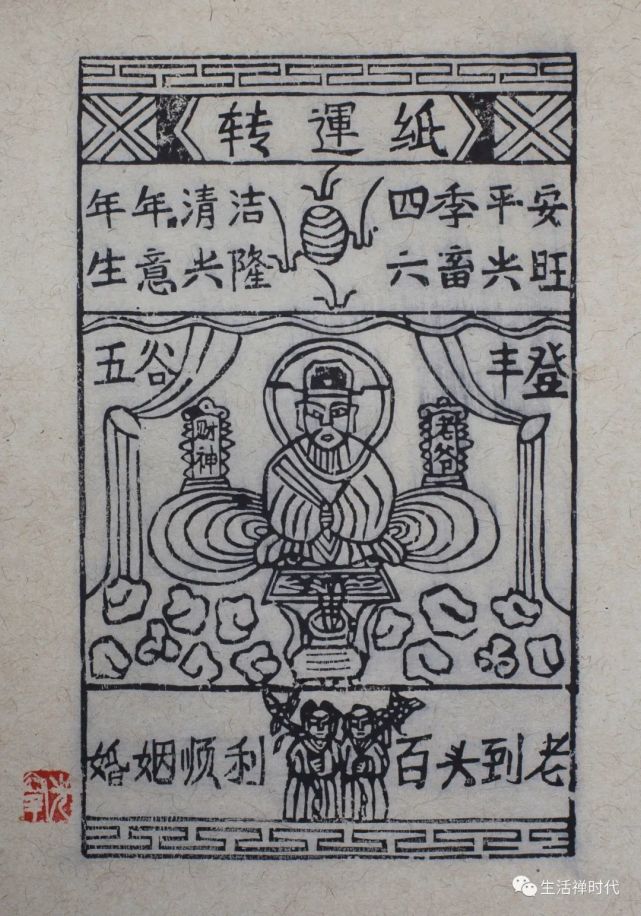 转運纸
年年清洁 四季平安
生意兴隆 六畜兴旺
五谷 丰登
财神 老爷
婚姻顺利 百头到老
生活禅时代